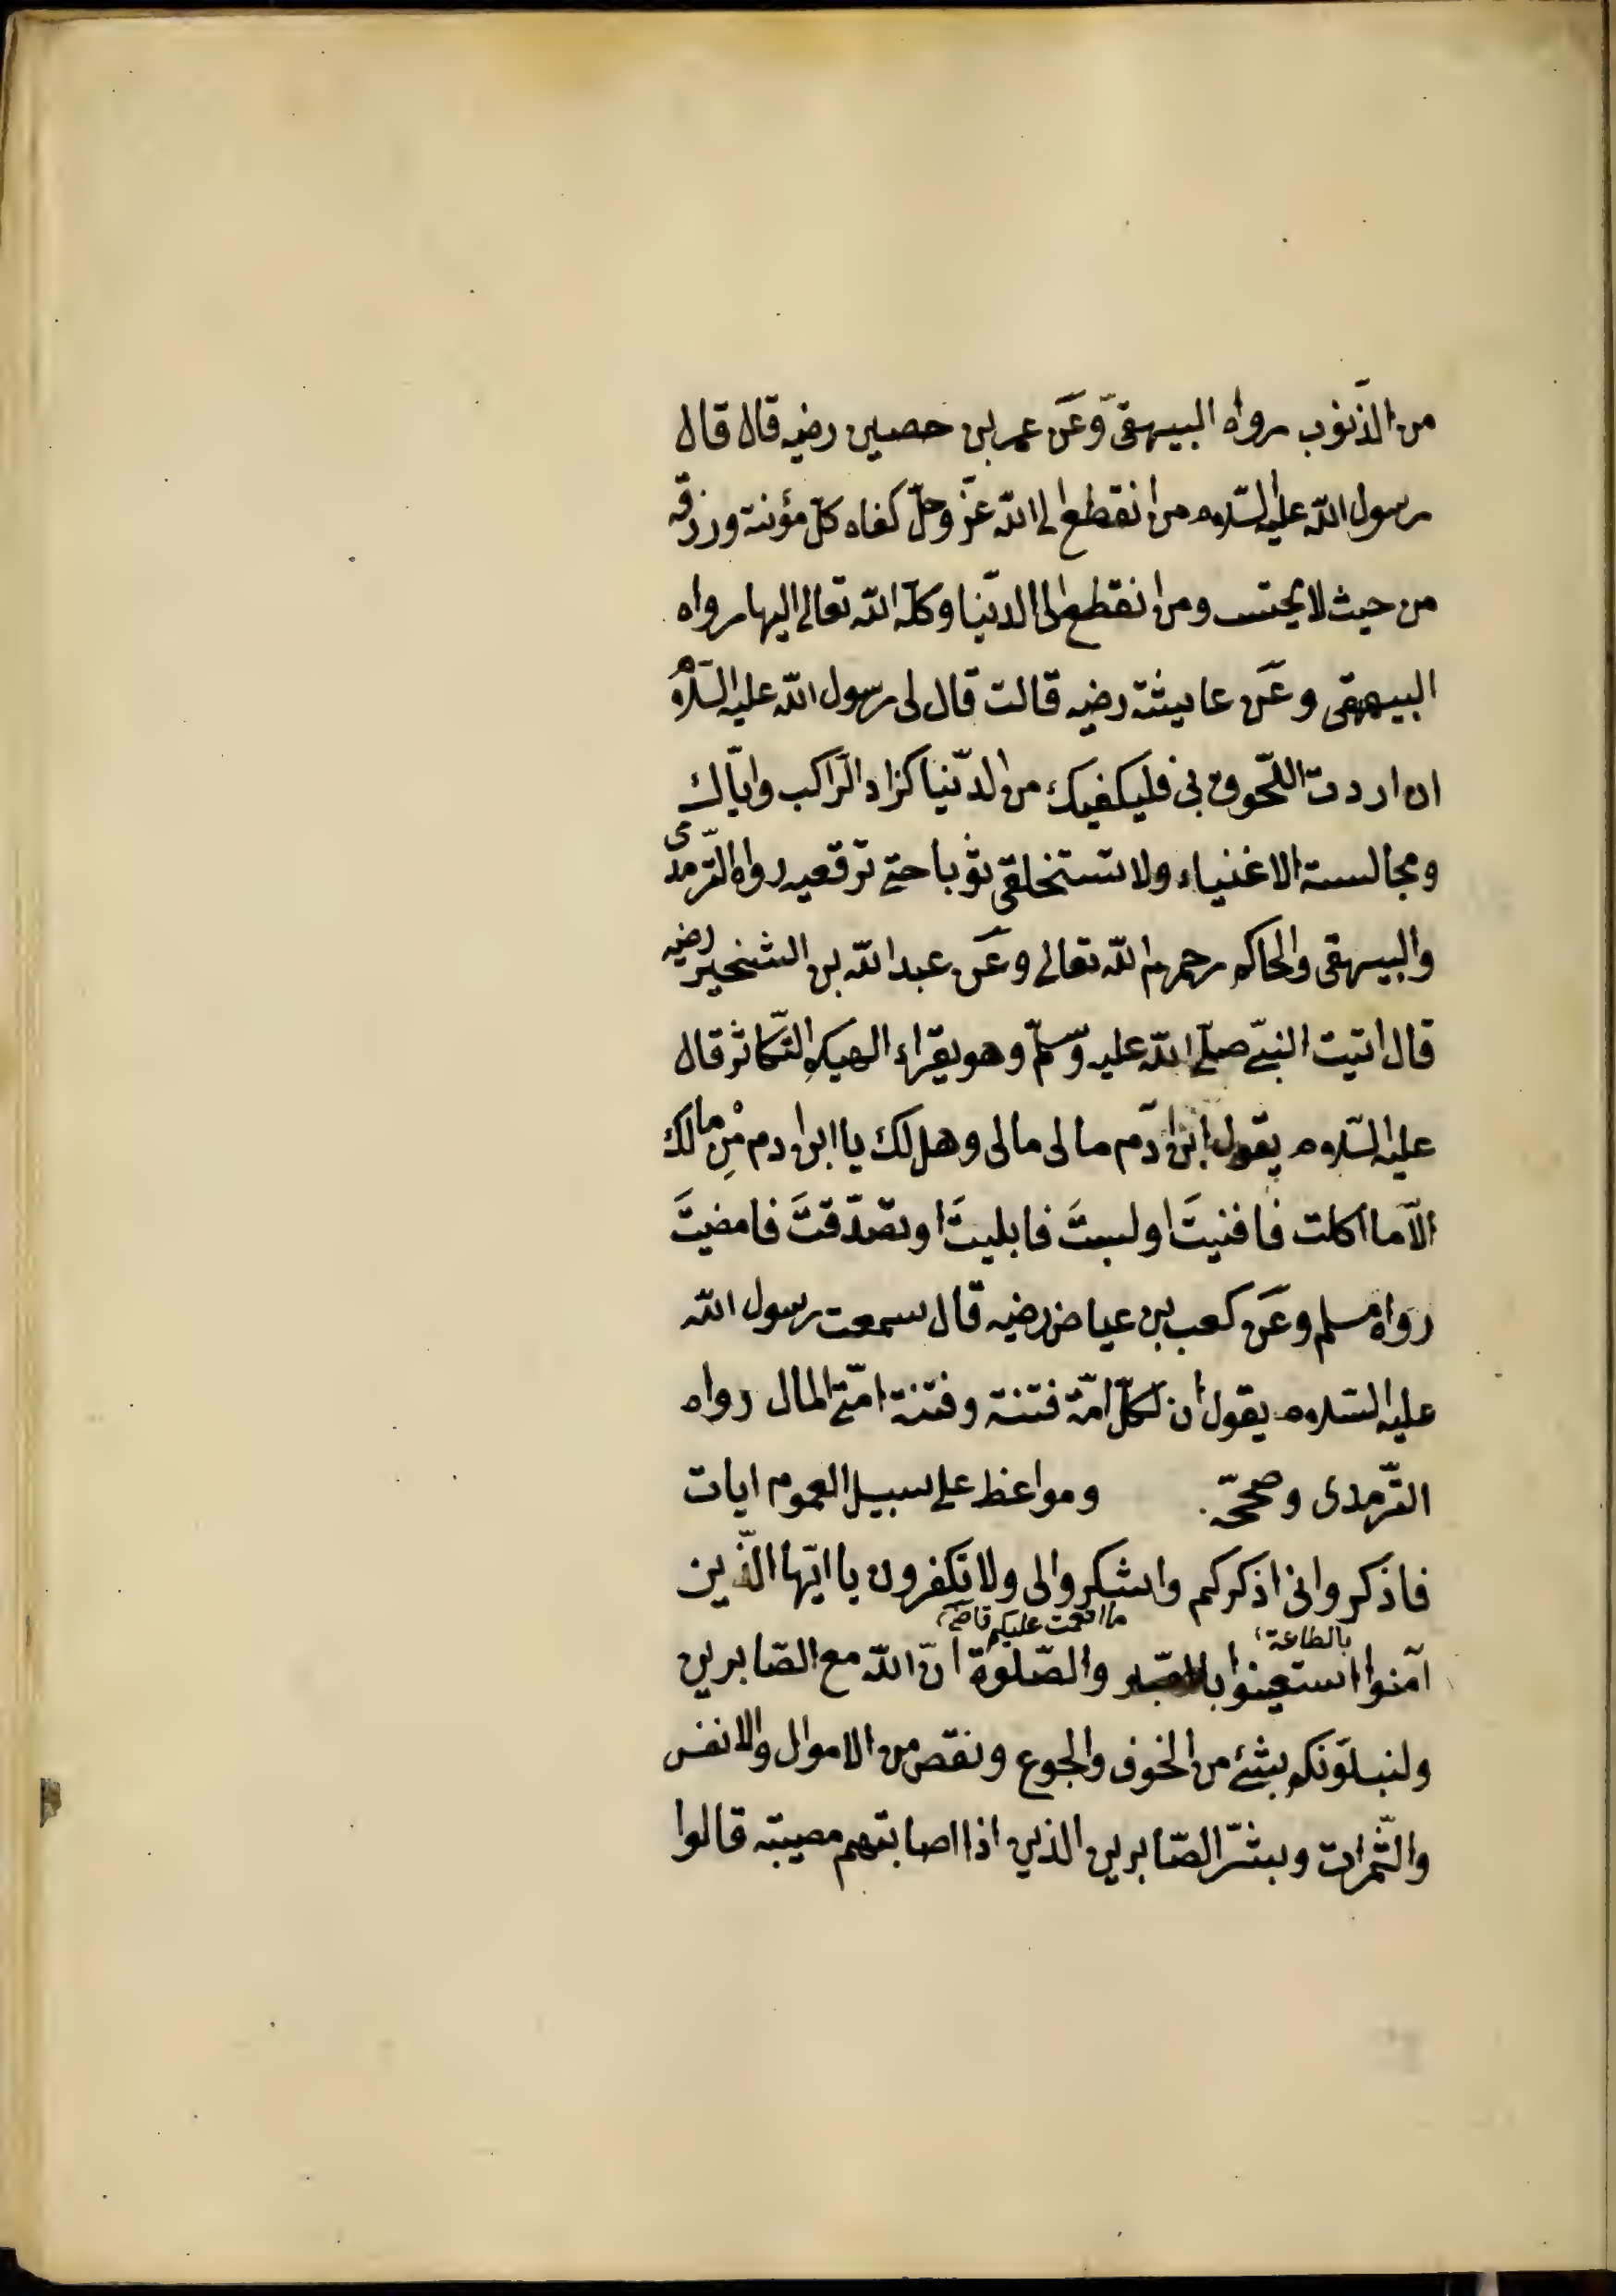 من الذّنوب رواه البيهقىّ وعَن عمر بن حصين رضيه قال قال
رسول اللّه عليه السّلام من انقطع الى اللّه عزّ وجلّ كفاه كلّ مؤنة ورزقه
من حيث لا يحتسب ومن انقطع الى الدّنيا وكله اللّه تعالى اليها رواه
البيهقى وعَن عايشة رضيه قالت قال لى رسول اللّه عليه السّلام
ان اردت اللّحوق بى فليكفيك من الدّنيا كزاد الرّاكب وايّاك
ومجالسة الاغنياء ولا تستخلقى ثوبا حتى ترقعيه رواه التّرمدى
والبيهقى والحاكم رحمهم اللّه تعالى وعَن عبد اللّه بن الشخير رضيه
قال اتيت النبىّ صلّى اللّه عليه وسلّم وهو يقراء الهيكم التّكاثر قال
عليه السّلام يقول ابن آدم مالى مالى وهل لك يا ابن ادم مِنْ مالك
الّا ما اكلت فافنيتَ او لبستَ فابليتَ او تصدّقتَ فامضيتَ
رواه مسلم وعَن كعب بن عياض رضيه قال سمعت رسول اللّه
عليه السّلام يقول ان لكلّ امّة فتنة وفتنة امّتى المال رواه
التّرمدى وصححّه . ومواعظ على سبيل العموم ايات
فاذكرونى اذكركم واشكروا لى ولا تكفرون يا ايّها الّذين
بالطاعة
آمنوا استعينوا بالصّبر والصّلوة انّ اللّه مع الصّابرين
ولنبلوّنكم بشئ من الخوف والجوع ونقص من الاموال والانفس
والثّمرات وبشّر الصّابرين الذين اذا اصابتهم مصيبة قالوا